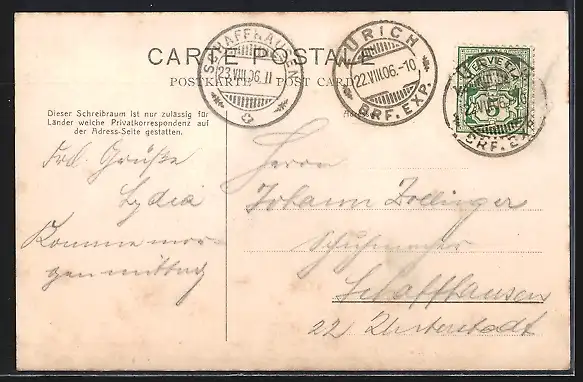 CARTE POSTALE
POSTKARTE POST CARD
SCHAFFHAUSEN
23.VIII.06.11
ZÜRICH
22.VIII.06.-10
BRF. EXP.
HELVETIA
5
BRF. EXP.
Dieser Schreibraum ist nur zulässig für
Länder welche Privatkorrespondenz auf
der Adress-Seite gestatten.
Frdl. Grüße
Lydia
Komme mor-
gen mittag
Herrn
Johann Zollinger
Schuhmacher
Schaffhausen
22 Unterstadt